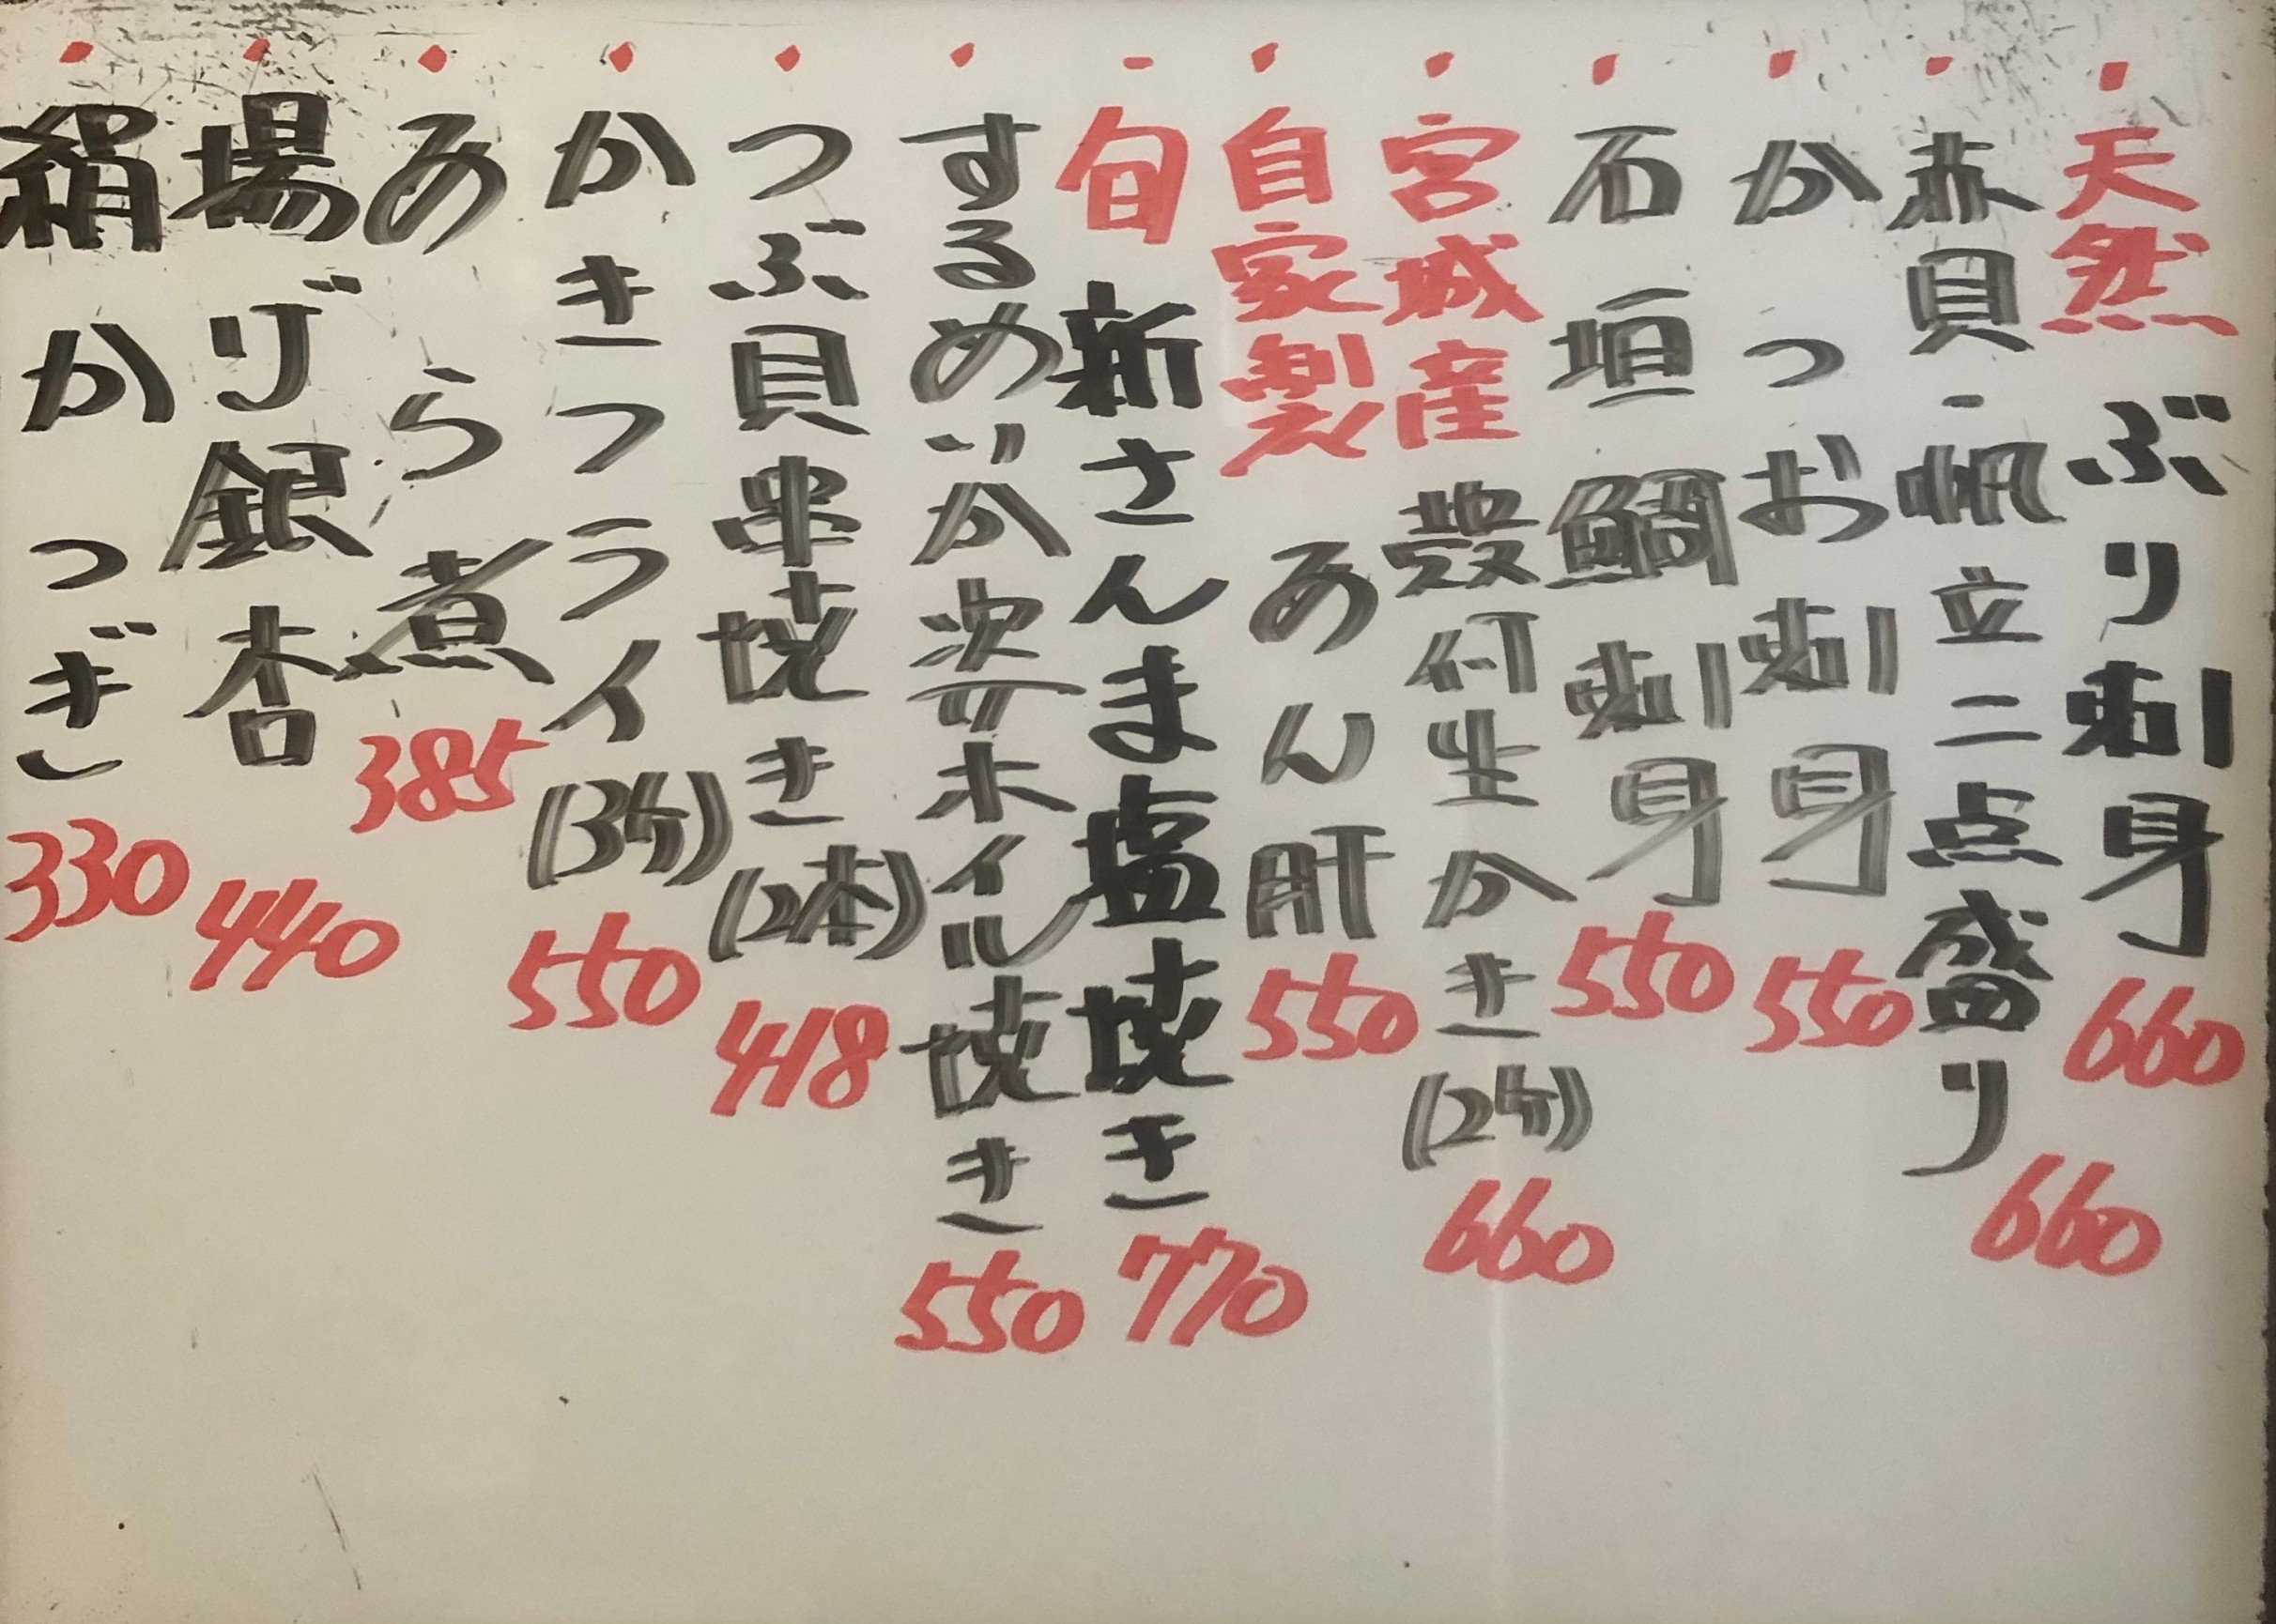 ・天然 ぶり刺身 660
・赤貝・帆立二点盛り 660
・かつお刺身 550
・石垣鯛刺身 550
・宮城産 殻付生かき(2ケ) 660
・自家製 あん肝 550
・旬 新さんま塩焼き 770
・するめいか姿ホイル焼き 550
・つぶ貝串焼き(2本) 418
・かきフライ(3ケ) 550
・あら煮 385
・揚げ銀杏 440
・絹かつぎ 330